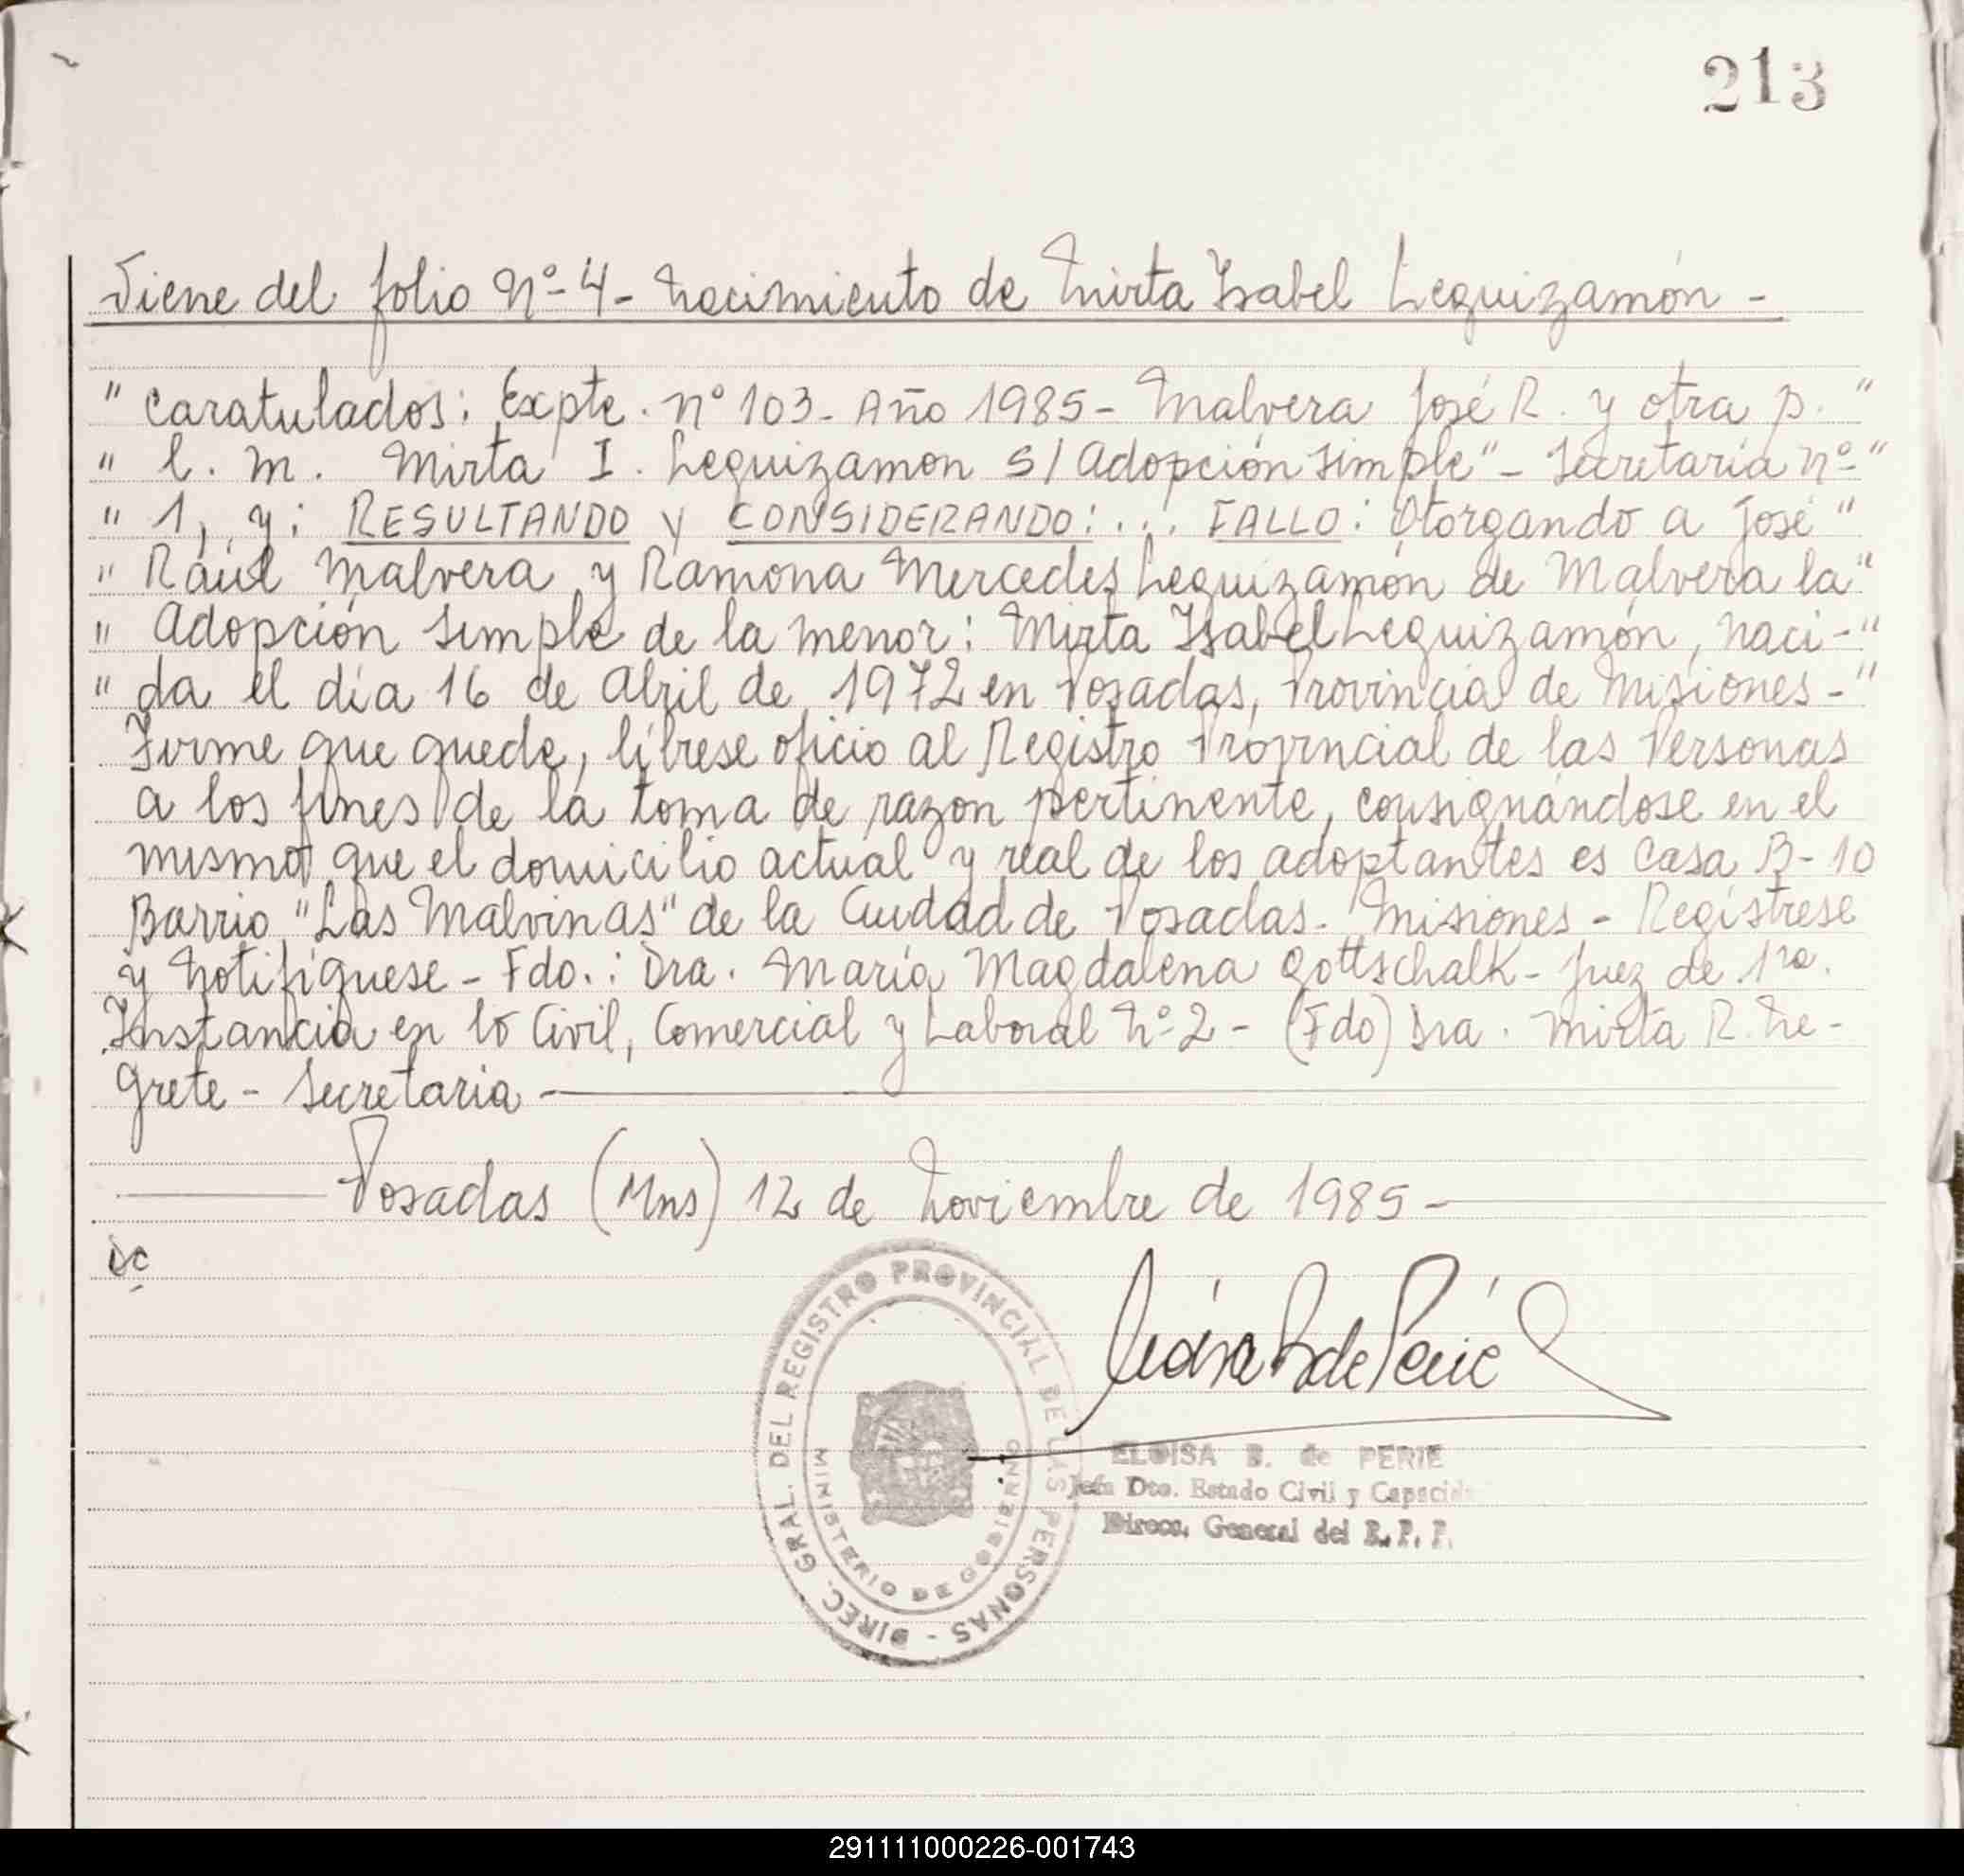 213
Viene del folio Nº 4 - Nacimiento de Mirta Isabel Leguizamón -
" caratulados: Expte. nº 103 - Año 1985 - Malvera José R. y otra p. "
" l. m. Mirta I. Leguizamon S/ Adopción Simple" - Secretaría nº "
" 1, y: RESULTANDO y CONSIDERANDO: ... FALLO: Otorgando a José "
" Raúl Malvera y Ramona Mercedes Leguizamón de Malvera la "
" Adopción Simple de la menor: Mirta Isabel Leguizamón, naci- "
" da el día 16 de Abril de 1972 en Posadas, Provincia de Misiones - "
Firme que quede, líbrese oficio al Registro Provincial de las Personas
a los fines de la toma de razon pertinente, consignándose en el
mismo que el domicilio actual y real de los adoptantes es Casa B-10
Barrio "Las Malvinas" de la Ciudad de Posadas - Misiones - Regístrese
y Notifíquese - Fdo.: Dra. María Magdalena Gottschalk - Juez de 1ra.
Instancia en lo Civil, Comercial y Laboral Nº 2 - (Fdo) Dra. Mirta R. Ne-
grete - Secretaria
Posadas (Mns) 12 de Noviembre de 1985 -
DC
DIREC. GRAL. DEL REGISTRO PROVINCIAL DE LAS PERSONAS -
MINISTERIO DE GOBIERNO
ELOISA B. de PERIE
Jefa Dto. Estado Civil y Capacid
Direcc. General del R. P. P.
291111000226-001743